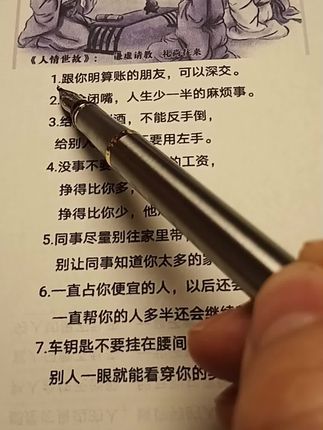 《人情世故》： 谦虚请教 礼尚往来
1.跟你明算账的朋友，可以深交。
2. 闭嘴，人生少一半的麻烦事。
3.给 酒，不能反手倒，
给别人 不要用左手。
4.没事不要 的工资，
挣得比你多，
挣得比你少，他
5.同事尽量别往家里带，
别让同事知道你太多的家
6.一直占你便宜的人，以后还会
一直帮你的人多半还会继续
7.车钥匙不要挂在腰间
别人一眼就能看穿你的